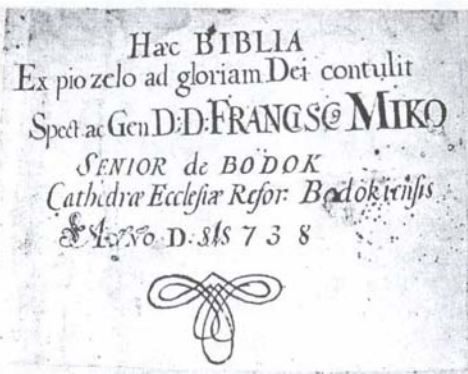 Hæc BIBLIA
Ex pio zelo ad gloriam Dei contulit
Spect ac Gen D:D: FRANCISCꝰ MIKO
SENIOR de BODOK
Cathedræ Ecclesiæ Refor: Bodokiensis
Aṅno D: 1738